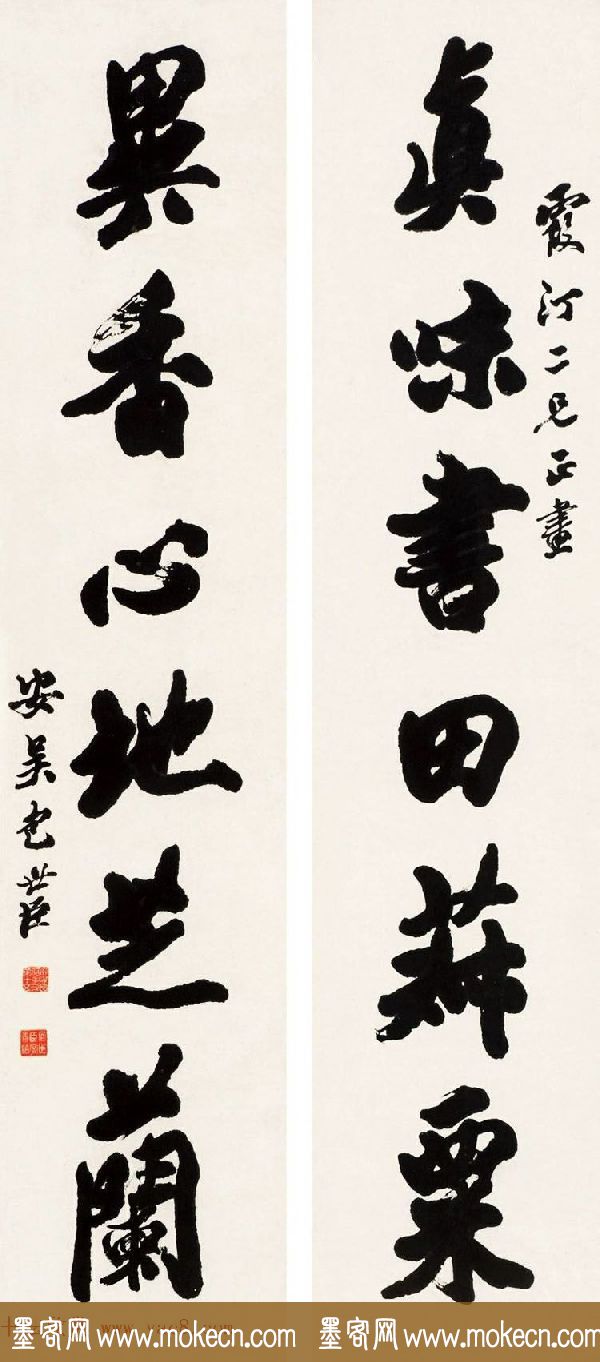 霞汀二兄正畫
眞味書田菽粟
異香心地芝蘭
安吳包世臣
墨客网 www.mokecn.com 墨客网 www.mokecn.com